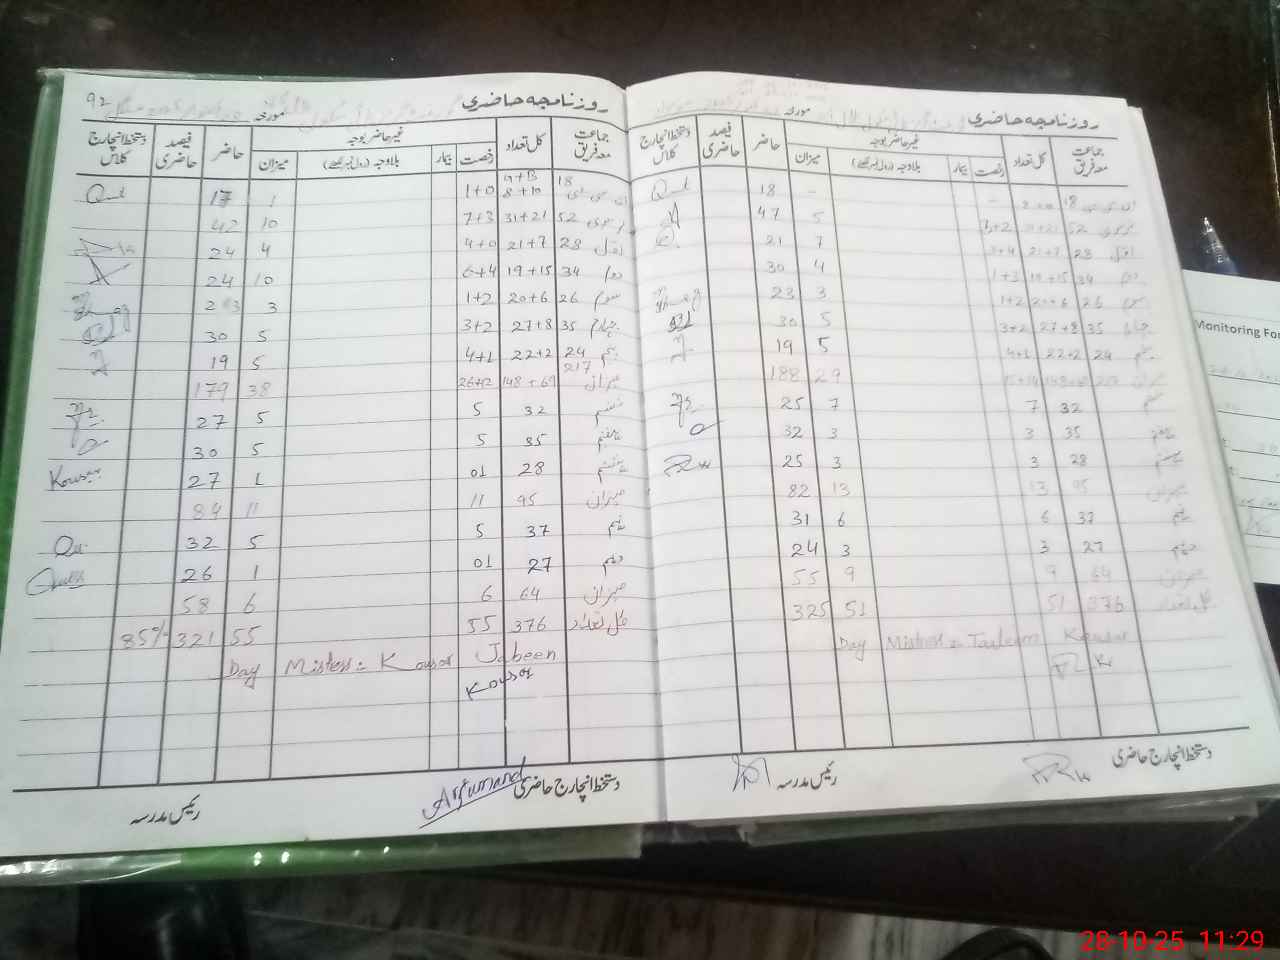 روزنامچہ حاضری
مورخہ
جماعت معہ فریق | کل تعداد | غیر حاضر بوجہ | حاضر | فیصد حاضری | دستخط انچارج کلاس
رخصت | بیمار | بلاوجہ (رول نمبر لکھیے) | میزان
18 | - | 18
52 | 31+21 | 3+2 | 5 | 47
28 | 21+7 | 3+4 | 7 | 21
دوم 34 | 19+15 | 1+3 | 4 | 30
سوم 26 | 20+6 | 1+2 | 3 | 23
چہارم 35 | 27+8 | 3+2 | 5 | 30
پنجم 24 | 22+2 | 4+1 | 5 | 19
میزان 217 | 148+69 | 15+14 | 29 | 188
ششم | 32 | 7 | 7 | 25
ہفتم | 35 | 3 | 3 | 32
ہشتم | 28 | 3 | 3 | 25
میزان | 95 | 13 | 13 | 82
نہم | 37 | 6 | 6 | 31
دہم | 27 | 3 | 3 | 24
میزان | 64 | 9 | 9 | 55
کل تعداد | 376 | 51 | 51 | 325
Day Mistress = Kousar
دستخط انچارج حاضری
رئیس مدرسہ
92
روزنامچہ حاضری
مورخہ
جماعت معہ فریق | کل تعداد | غیر حاضر بوجہ | حاضر | فیصد حاضری | دستخط انچارج کلاس
رخصت | بیمار | بلاوجہ (رول نمبر لکھیے) | میزان
G+B
18 | 8+10 | 1+0 | 1 | 17
52 | 31+21 | 7+3 | 10 | 42
28 | 21+7 | 4+0 | 4 | 24
دوم 34 | 19+15 | 6+4 | 10 | 24
سوم 26 | 20+6 | 1+2 | 3 | 23
چہارم 35 | 27+8 | 3+2 | 5 | 30
پنجم 24 | 22+2 | 4+1 | 5 | 19
میزان 217 | 148+69 | 26+12 | 38 | 179
ششم | 32 | 5 | 5 | 27
ہفتم | 35 | 5 | 5 | 30
ہشتم | 28 | 01 | 1 | 27 | Kousar
میزان | 95 | 11 | 11 | 84
نہم | 37 | 5 | 5 | 32
دہم | 27 | 01 | 1 | 26
میزان | 64 | 6 | 6 | 58
کل تعداد | 376 | 55 | 55 | 321 | 85%
Day Mistress = Kousar Jabeen
Kousar
دستخط انچارج حاضری
Arjumand
رئیس مدرسہ
Monitoring For
28-10-25 11:29